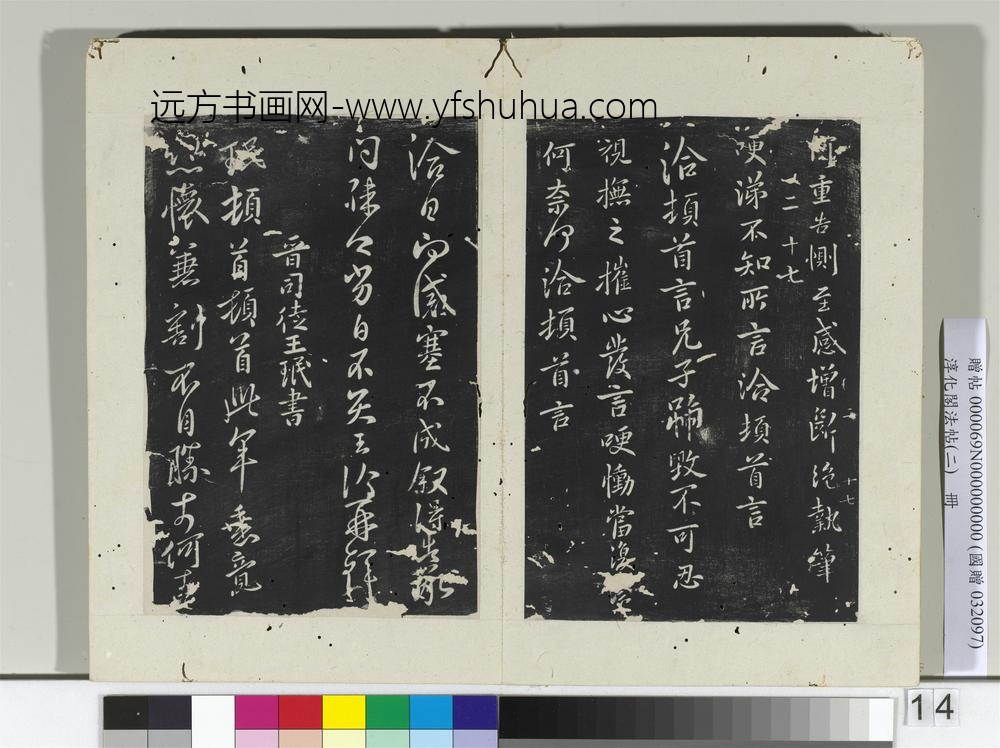 远方书画网-www.yfshuhua.com
重告恻至感增断绝執筆
哽涕不知所言洽頓首言
二 十七
十七
洽頓首言兄子號毀不可忍
視撫之摧心發言哽慟當復
何奈何洽頓首言
洽白向感塞不成叙得告
白不具王洽再拜
晋司徒王珉書
珉頓首頓首此年垂竟
懷兼割不自勝奈何
贈帖 000069N000000000 (國贈 032097)
淳化閣法帖(二) 冊
14